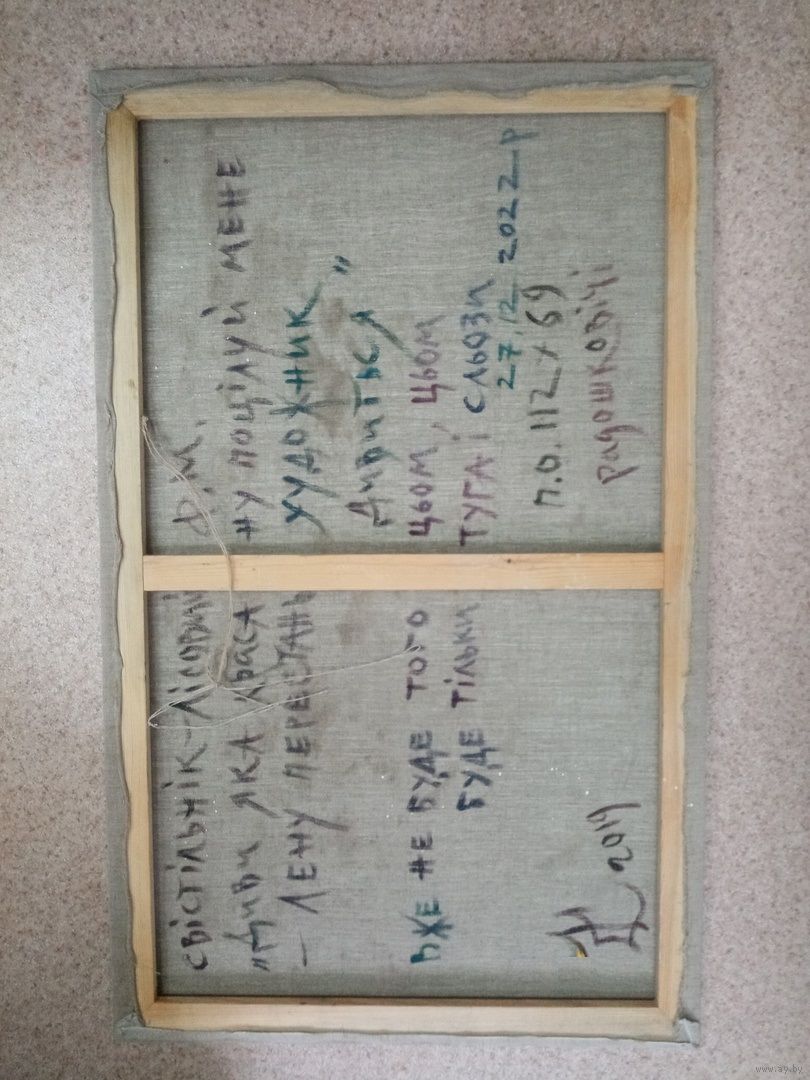 СВІСТІЛЬНІК-ЛІЛОВИЙ Ф.М.
„ДИВИ ЯКА КРАСА НУ ПОЦІЛУЙ МЕНЕ
– ЛЕНУ ПЕРЕСТАНЬ ХУДОЖНИК
ДИВИТЬСЯ"
ВЖЕ НЕ БУДЕ ТОГО ЦЬОМ, ЦЬОМ
БУДЕ ТІЛЬКИ ТУГА І СЛЬОЗИ
27.12 2022 Р
П.О. 112х69
2019 Радошковічі
www.ay.by